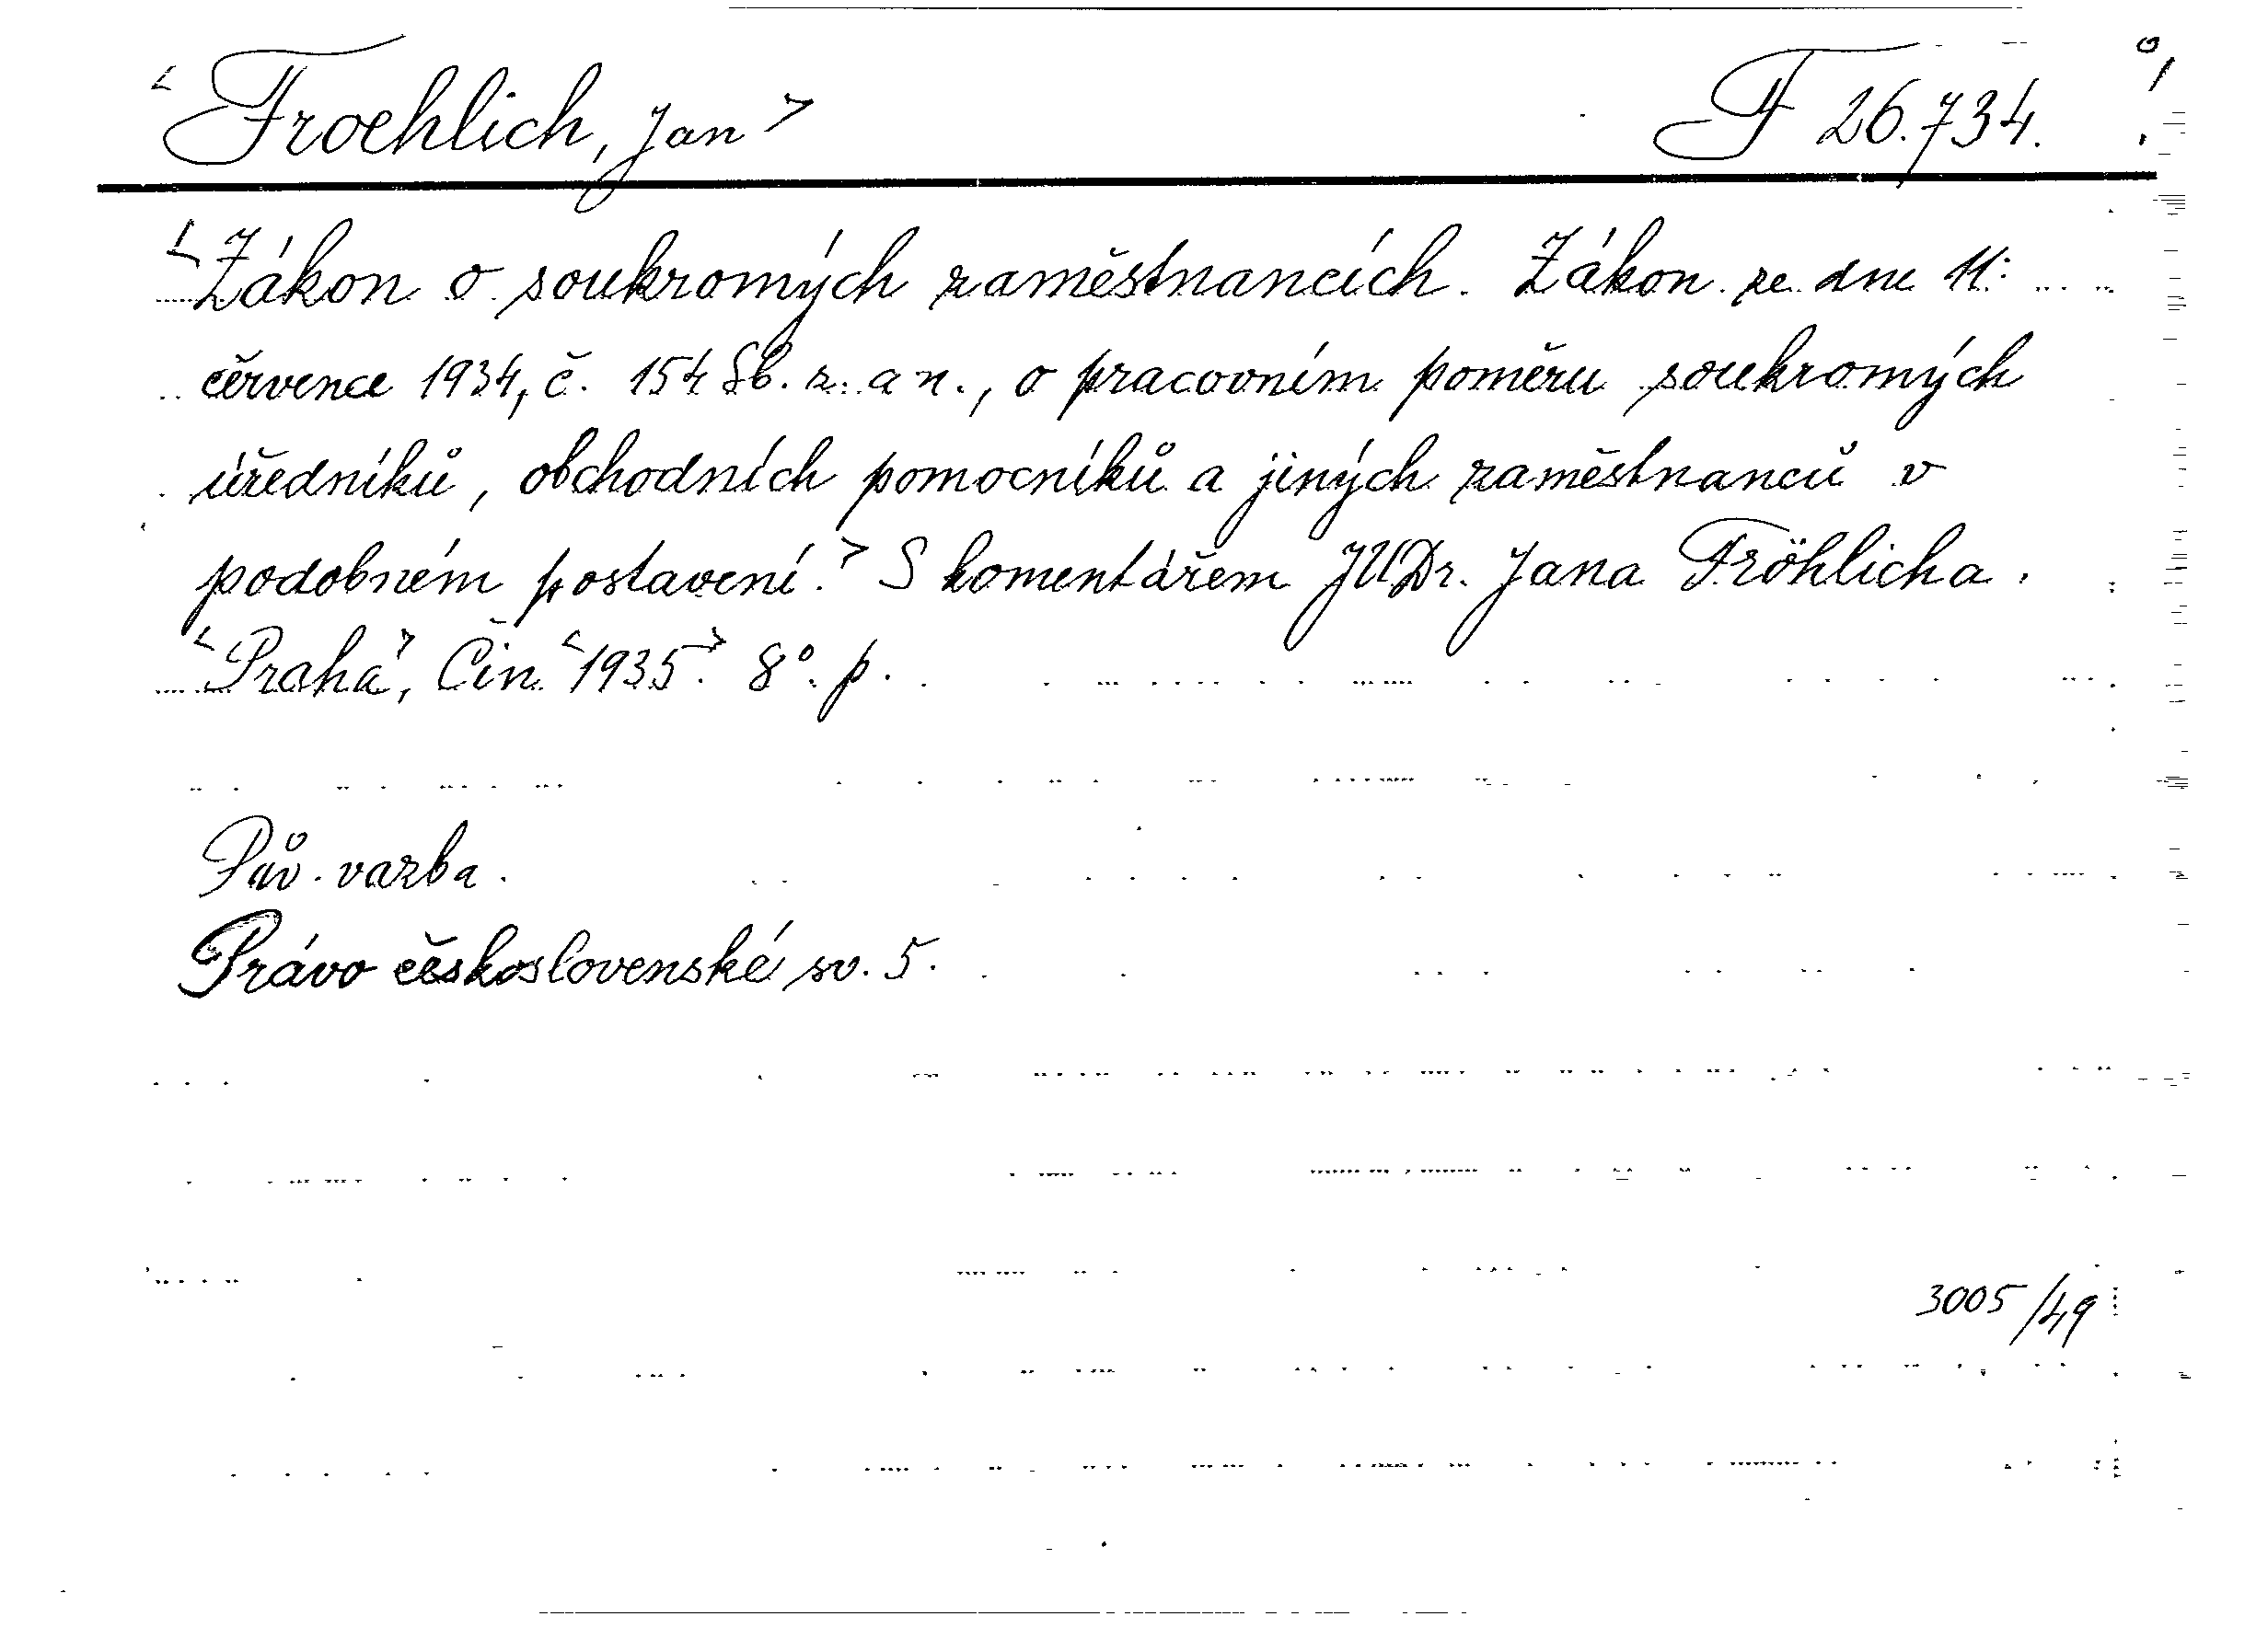 <Froehlich, Jan> F 26.734.
<Zákon o soukromých zaměstnancích. Zákon ze dne 11.
července 1934, č. 154 Sb. z. a n., o pracovním poměru soukromých
úředníků, obchodních pomocníků a jiných zaměstnanců v
podobném postavení.> S komentářem JUDr. Jana Fröhlicha.
<Praha>, Čin <1935>. 8°. p.
Pův. vazba.
Právo československé sv. 5.
3005/49